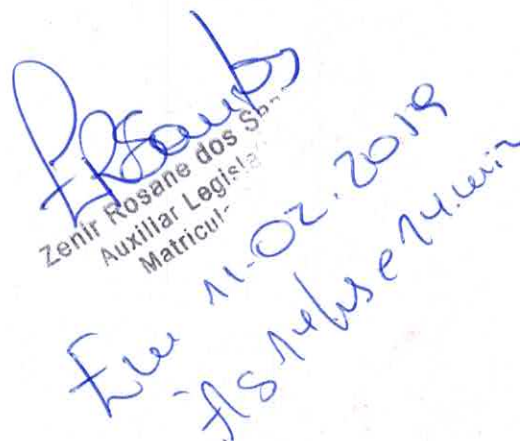 ZRSantos
Zenir Rosane dos S
Auxiliar Legisla
Matricul
Em 11.02.2019
às 14hs e 14 min